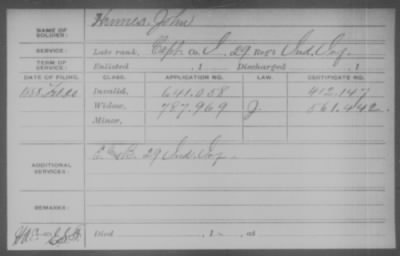 NAME OF SOLDIER: Himes, John
SERVICE: Late rank, Capt. Co. I, 29 Reg't Ind. Inf.
TERM OF SERVICE: Enlisted , 1 Discharged , 1
DATE OF FILING. CLASS. APPLICATION NO. LAW. CERTIFICATE NO.
Invalid, 641.058 412.147
Widow, 787.969 J 561.442.
Minor,
ADDITIONAL SERVICES: E & B. 29 Ind. Inf.
REMARKS:
Died , 1 , at